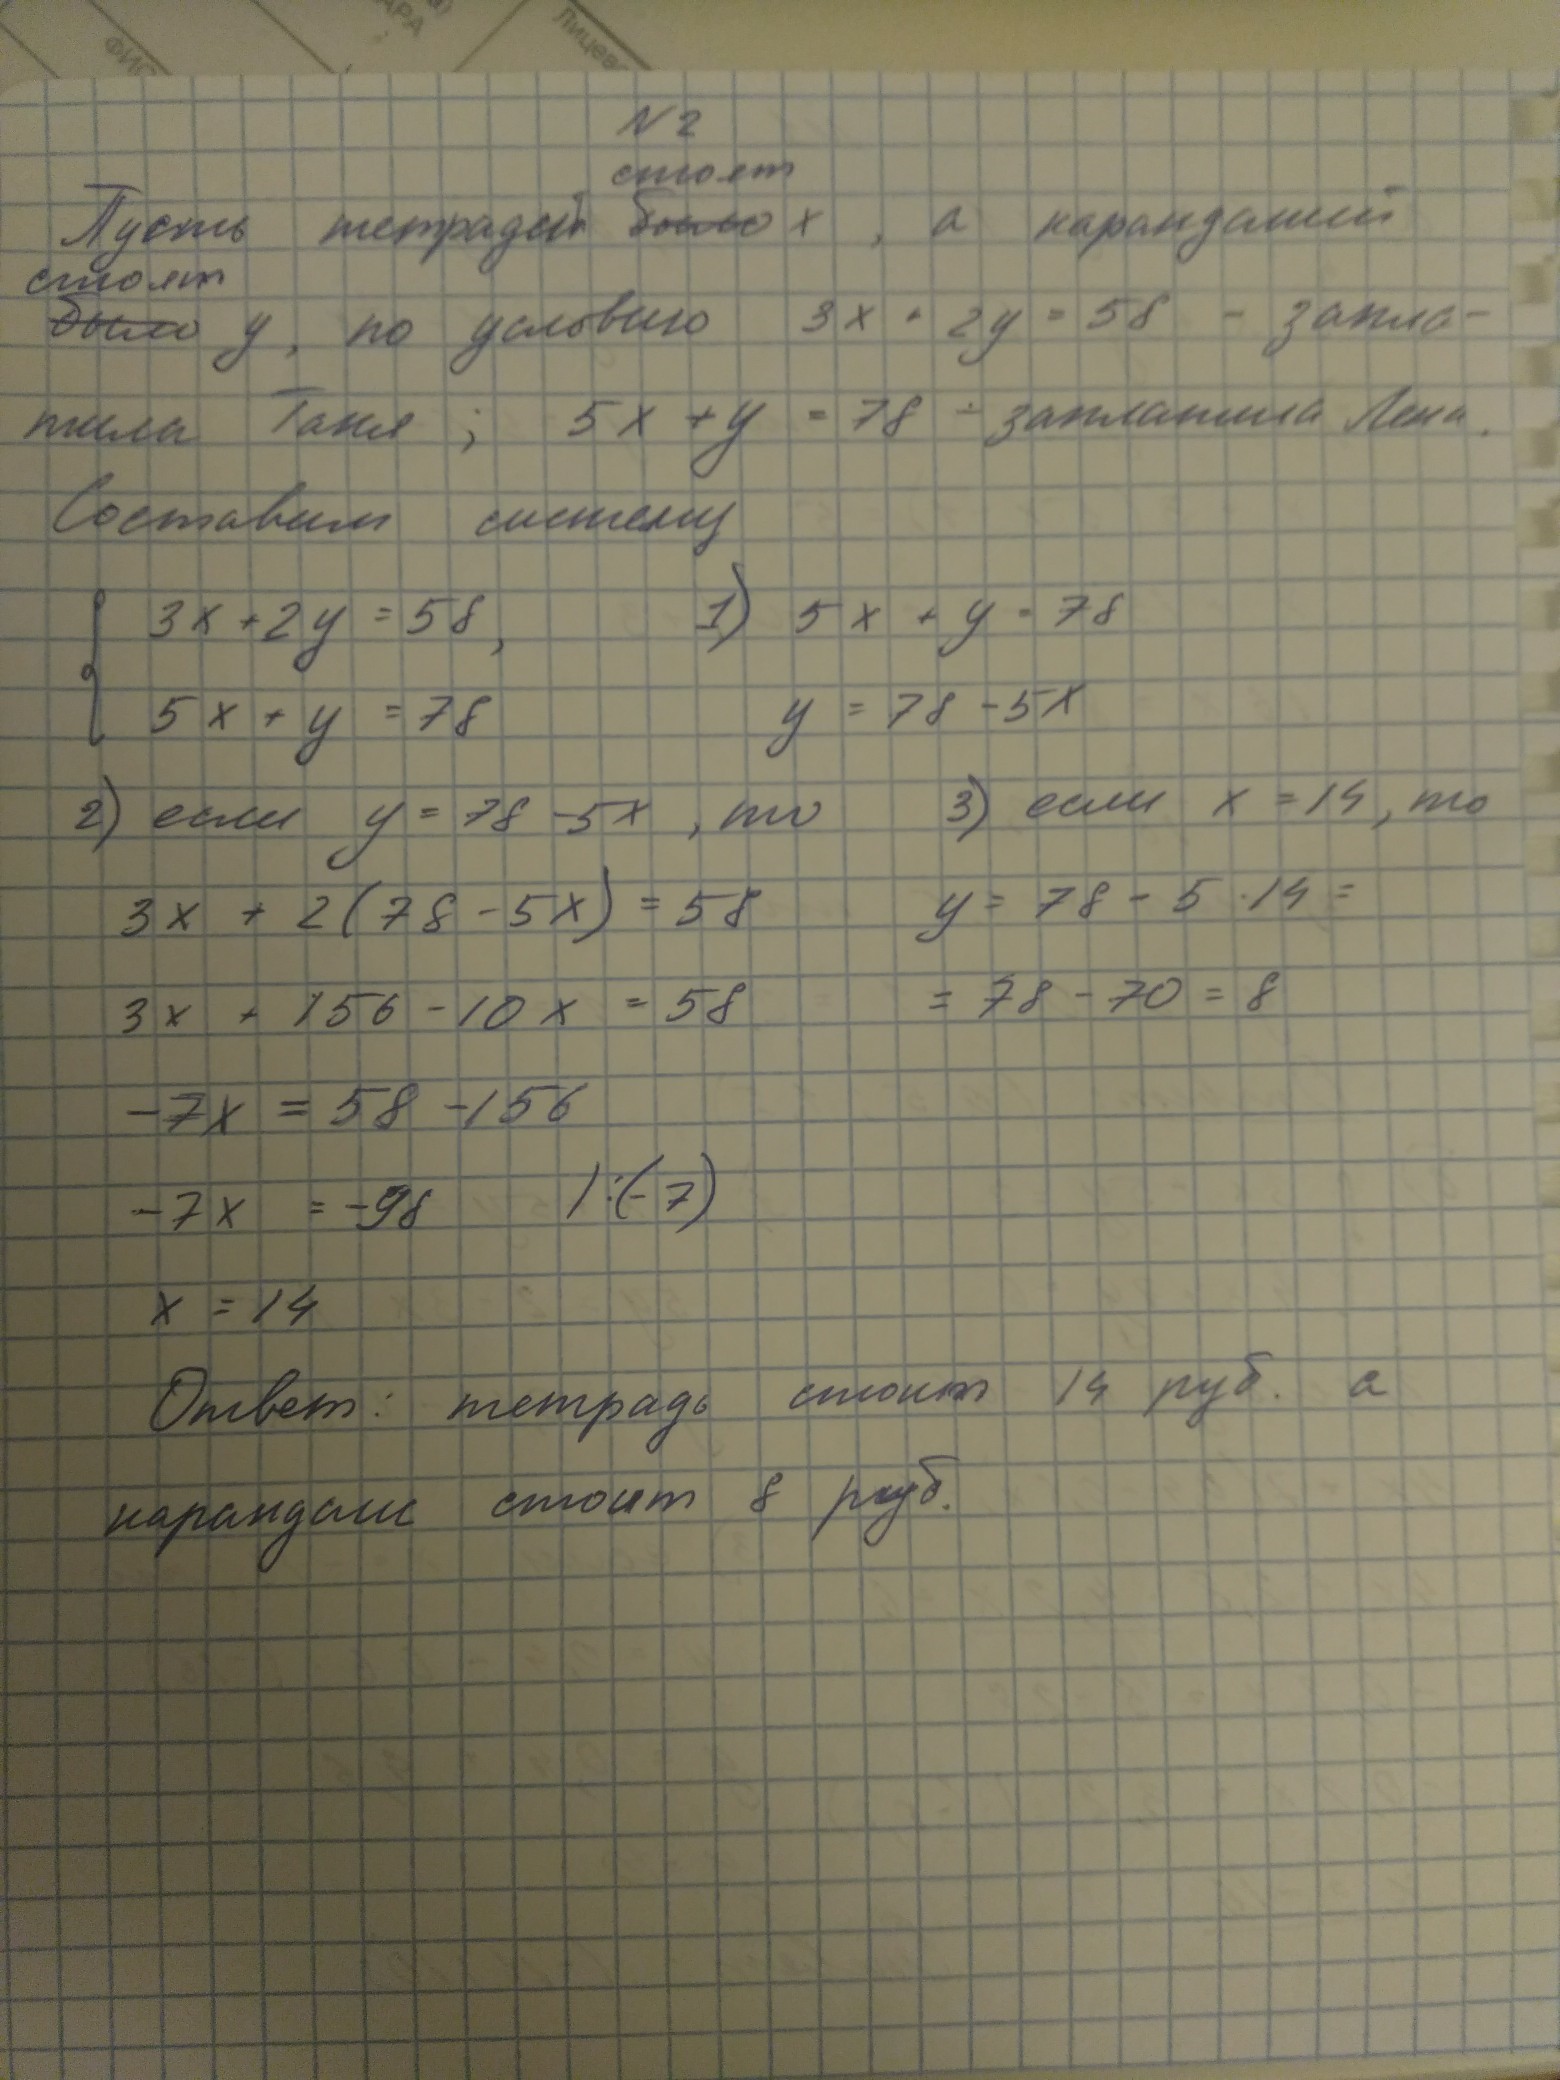 ФИО
АРА
Лицево
N 2
стоят
Пусть тетрадей было x, а карандашей
стоят
было y, по условию 3x + 2y = 58 - запла-
тила Таня; 5x + y = 78 - заплатила Лена.
Составим систему
3x + 2y = 58, 1) 5x + y = 78
5x + y = 78 y = 78 - 5x
2) если y = 78 - 5x, то 3) если x = 14, то
3x + 2(78 - 5x) = 58 y = 78 - 5 · 14 =
3x + 156 - 10x = 58 = 78 - 70 = 8
-7x = 58 - 156
-7x = -98 | :(-7)
x = 14
Ответ: тетрадь стоит 14 руб. а
карандаш стоит 8 руб.